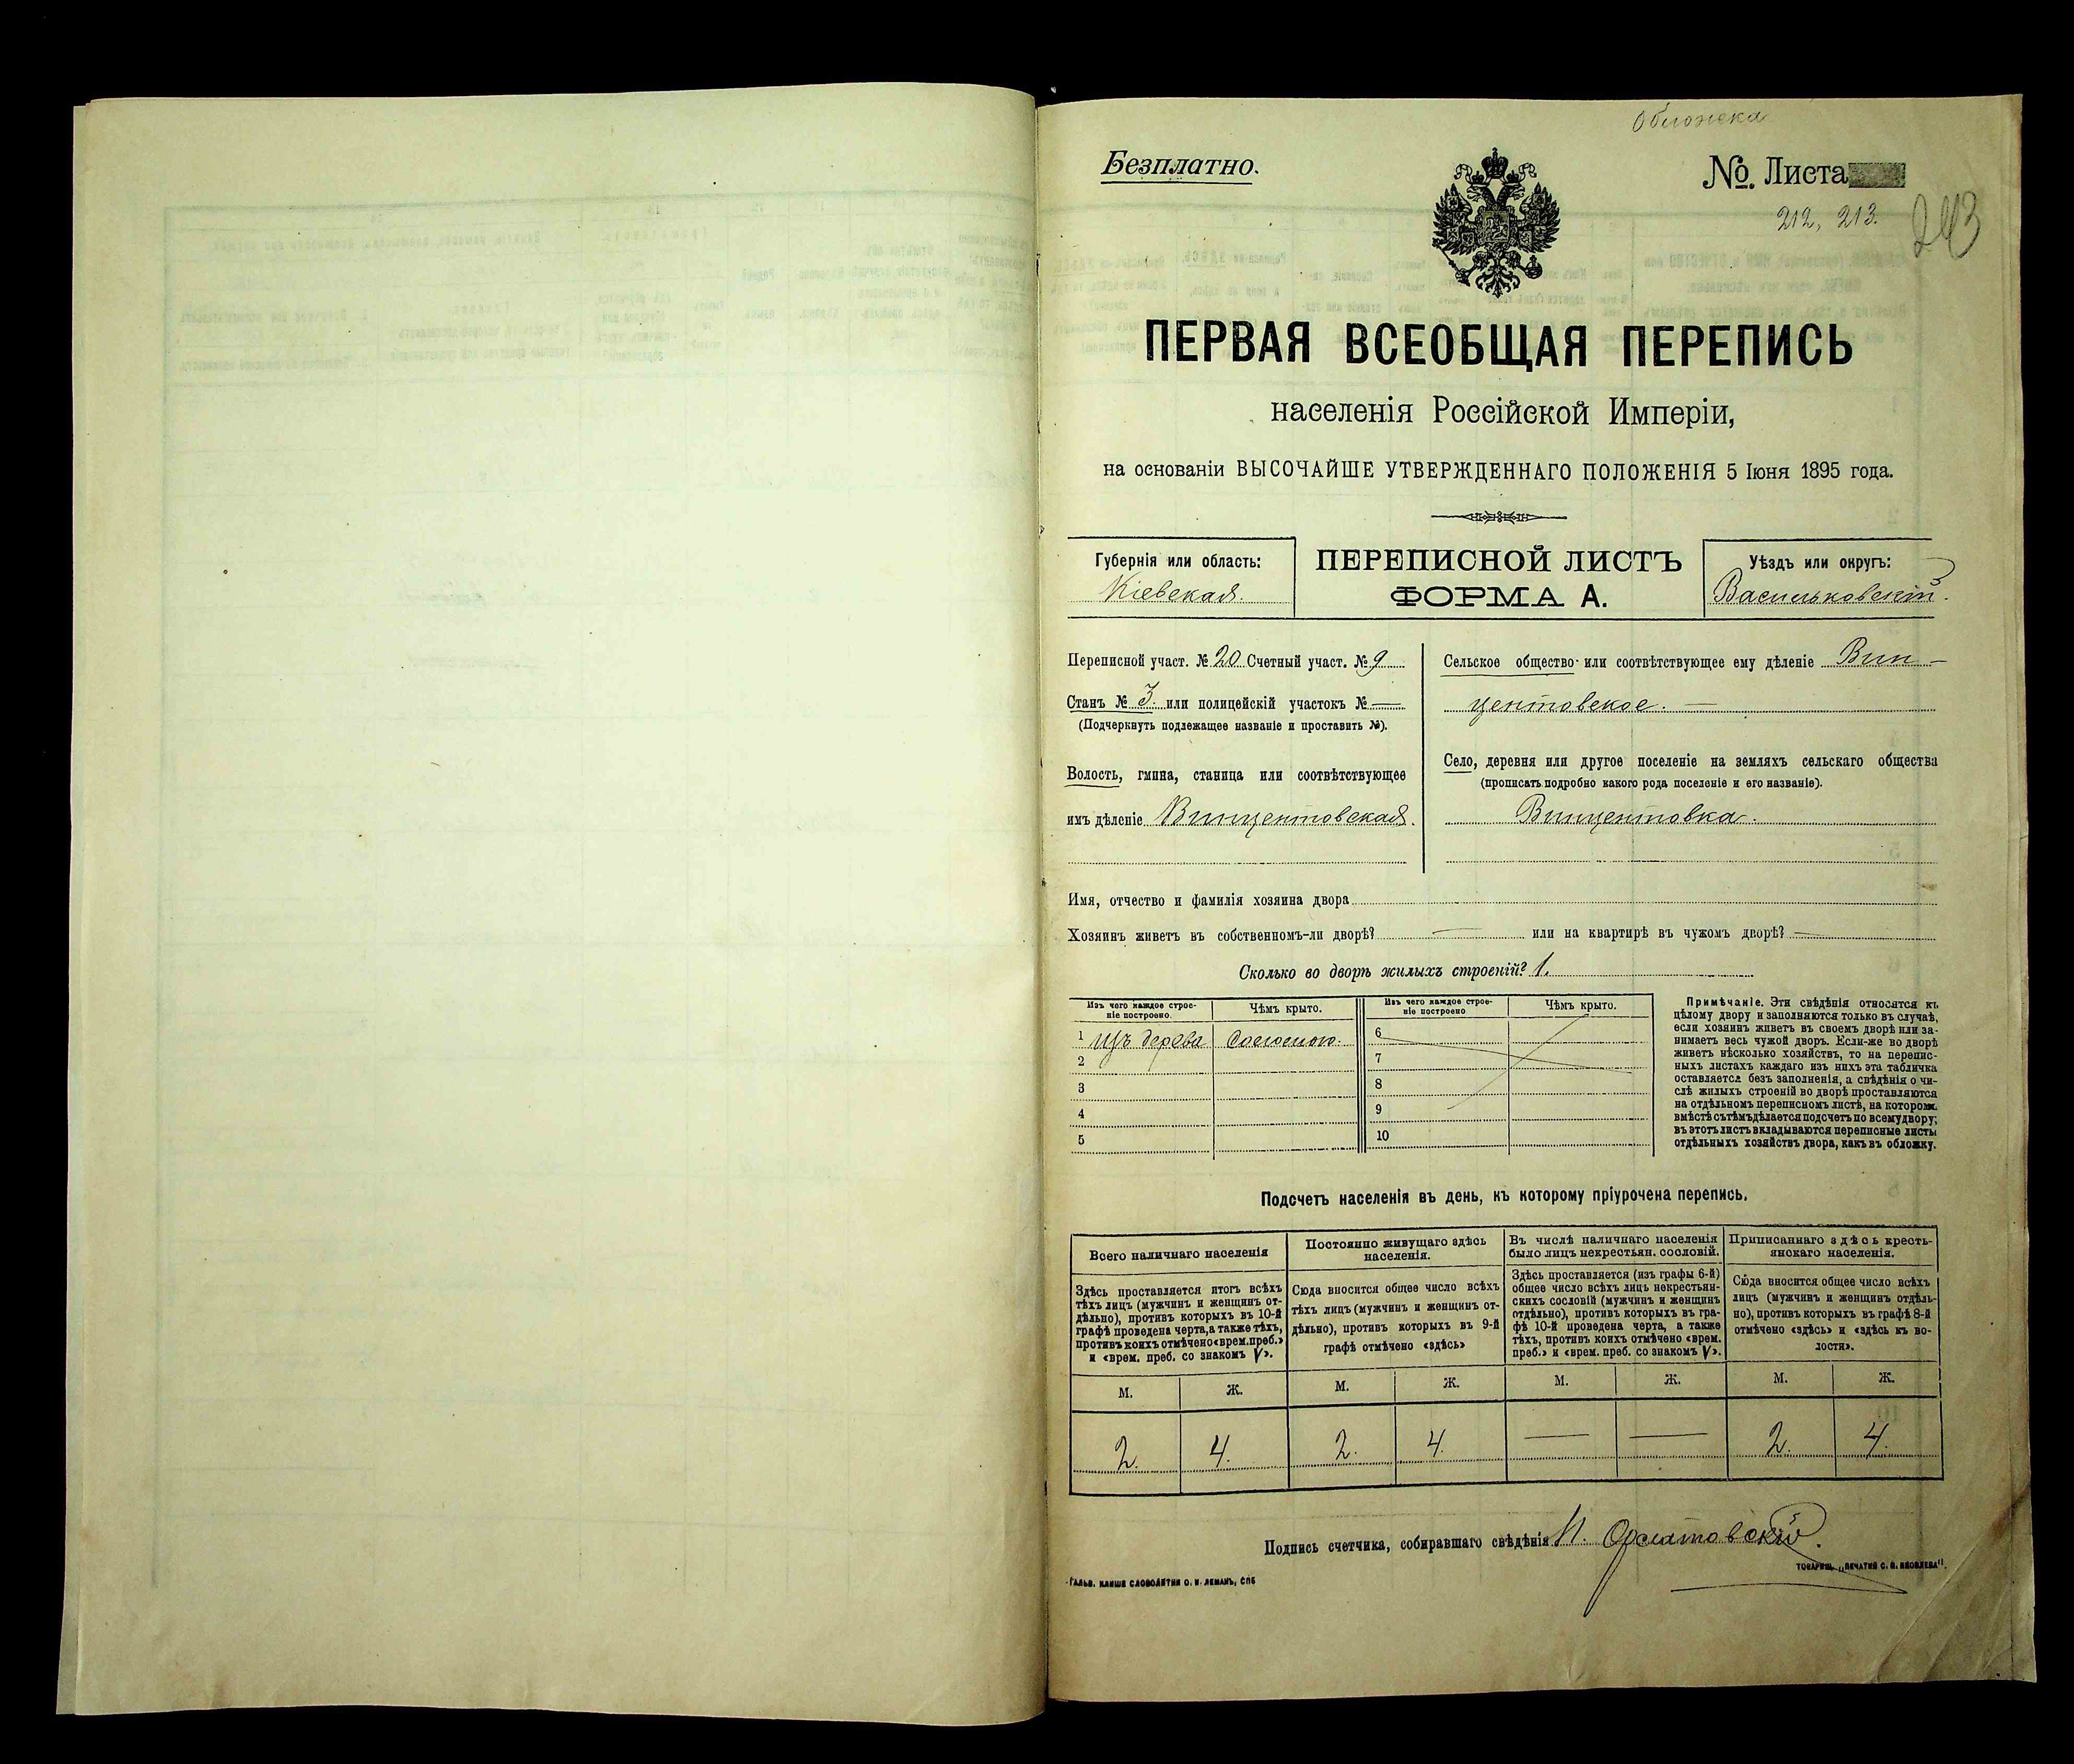 Обложка
Безплатно.
№. Листа
212, 213.
243
ПЕРВАЯ ВСЕОБЩАЯ ПЕРЕПИСЬ
населенія Россійской Имперіи,
на основаніи ВЫСОЧАЙШЕ УТВЕРЖДЕННАГО ПОЛОЖЕНІЯ 5 Іюня 1895 года.
Губернія или область:
Кіевская.
ПЕРЕПИСНОЙ ЛИСТЪ
ФОРМА А.
Уѣздъ или округъ:
Васильковскій.
Переписной участ. № 20 Счетный участ. № 9
Станъ № 3. или полицейскій участокъ № —
(Подчеркнуть подлежащее названіе и проставить №).
Волость, гмина, станица или соотвѣтствующее
имъ дѣленіе Винцентовская.
Сельское общество или соотвѣтствующее ему дѣленіе Вин-
центовское. —
Село, деревня или другое поселеніе на земляхъ сельскаго общества
(прописать подробно какого рода поселеніе и его названіе).
Винцентовка.
Имя, отчество и фамилія хозяина двора
Хозяинъ живетъ въ собственномъ-ли дворѣ? — или на квартирѣ въ чужомъ дворѣ? —
Сколько во дворѣ жилыхъ строеній? 1.
Изъ чего каждое строе-
ніе построено.
Чѣмъ крыто.
Изъ чего каждое строе-
ніе построено
Чѣмъ крыто.
1 Изъ дерева Соломою.
2
3
4
5
6
7
8
9
10
Примѣчаніе. Эти свѣдѣнія относятся къ
цѣлому двору и заполняются только въ случаѣ,
если хозяинъ живетъ въ своемъ дворѣ или за-
нимаетъ весь чужой дворъ. Если-же во дворѣ
живетъ нѣсколько хозяйствъ, то на перепис-
ныхъ листахъ каждаго изъ нихъ эта табличка
оставляется безъ заполненія, а свѣдѣнія о чи-
слѣ жилыхъ строеній во дворѣ проставляются
на отдѣльномъ переписномъ листѣ, на которомъ
вмѣстѣ съ тѣмъ дѣлается подсчетъ по всему двору;
въ этотъ листъ вкладываются переписные листы
отдѣльныхъ хозяйствъ двора, какъ въ обложку.
Подсчетъ населенія въ день, къ которому пріурочена перепись.
Всего наличнаго населенія
Здѣсь проставляется итогъ всѣхъ
тѣхъ лицъ (мужчинъ и женщинъ от-
дѣльно), противъ которыхъ въ 10-й
графѣ проведена черта, а также тѣхъ,
противъ коихъ отмѣчено «врем. преб.»
и «врем. преб. со знакомъ V».
Постоянно живущаго здѣсь
населенія.
Сюда вносится общее число всѣхъ
тѣхъ лицъ (мужчинъ и женщинъ от-
дѣльно), противъ которыхъ въ 9-й
графѣ отмѣчено «здѣсь»
Въ числѣ наличнаго населенія
было лицъ некрестьян. сословій.
Здѣсь проставляется (изъ графы 6-й)
общее число всѣхъ лицъ некрестьян-
скихъ сословій (мужчинъ и женщинъ
отдѣльно), противъ которыхъ въ гра-
фѣ 10-й проведена черта, а также
тѣхъ, противъ коихъ отмѣчено «врем.
преб.» и «врем. преб. со знакомъ V».
Приписаннаго здѣсь кресть-
янскаго населенія.
Сюда вносится общее число всѣхъ
лицъ (мужчинъ и женщинъ отдѣль-
но), противъ которыхъ въ графѣ 8-й
отмѣчено «здѣсь» и «здѣсь къ во-
лости».
М. Ж. М. Ж. М. Ж. М. Ж.
2. 4. 2. 4. — — 2. 4.
Подпись счетчика, собиравшаго свѣдѣнія
ГАЛЬВ. КЛИШЕ СЛОВОЛИТНИ О. И. ЛЕМАНЪ, СПБ
ТОВАРИЩ. „ПЕЧАТНЯ С. П. ЯКОВЛЕВА".